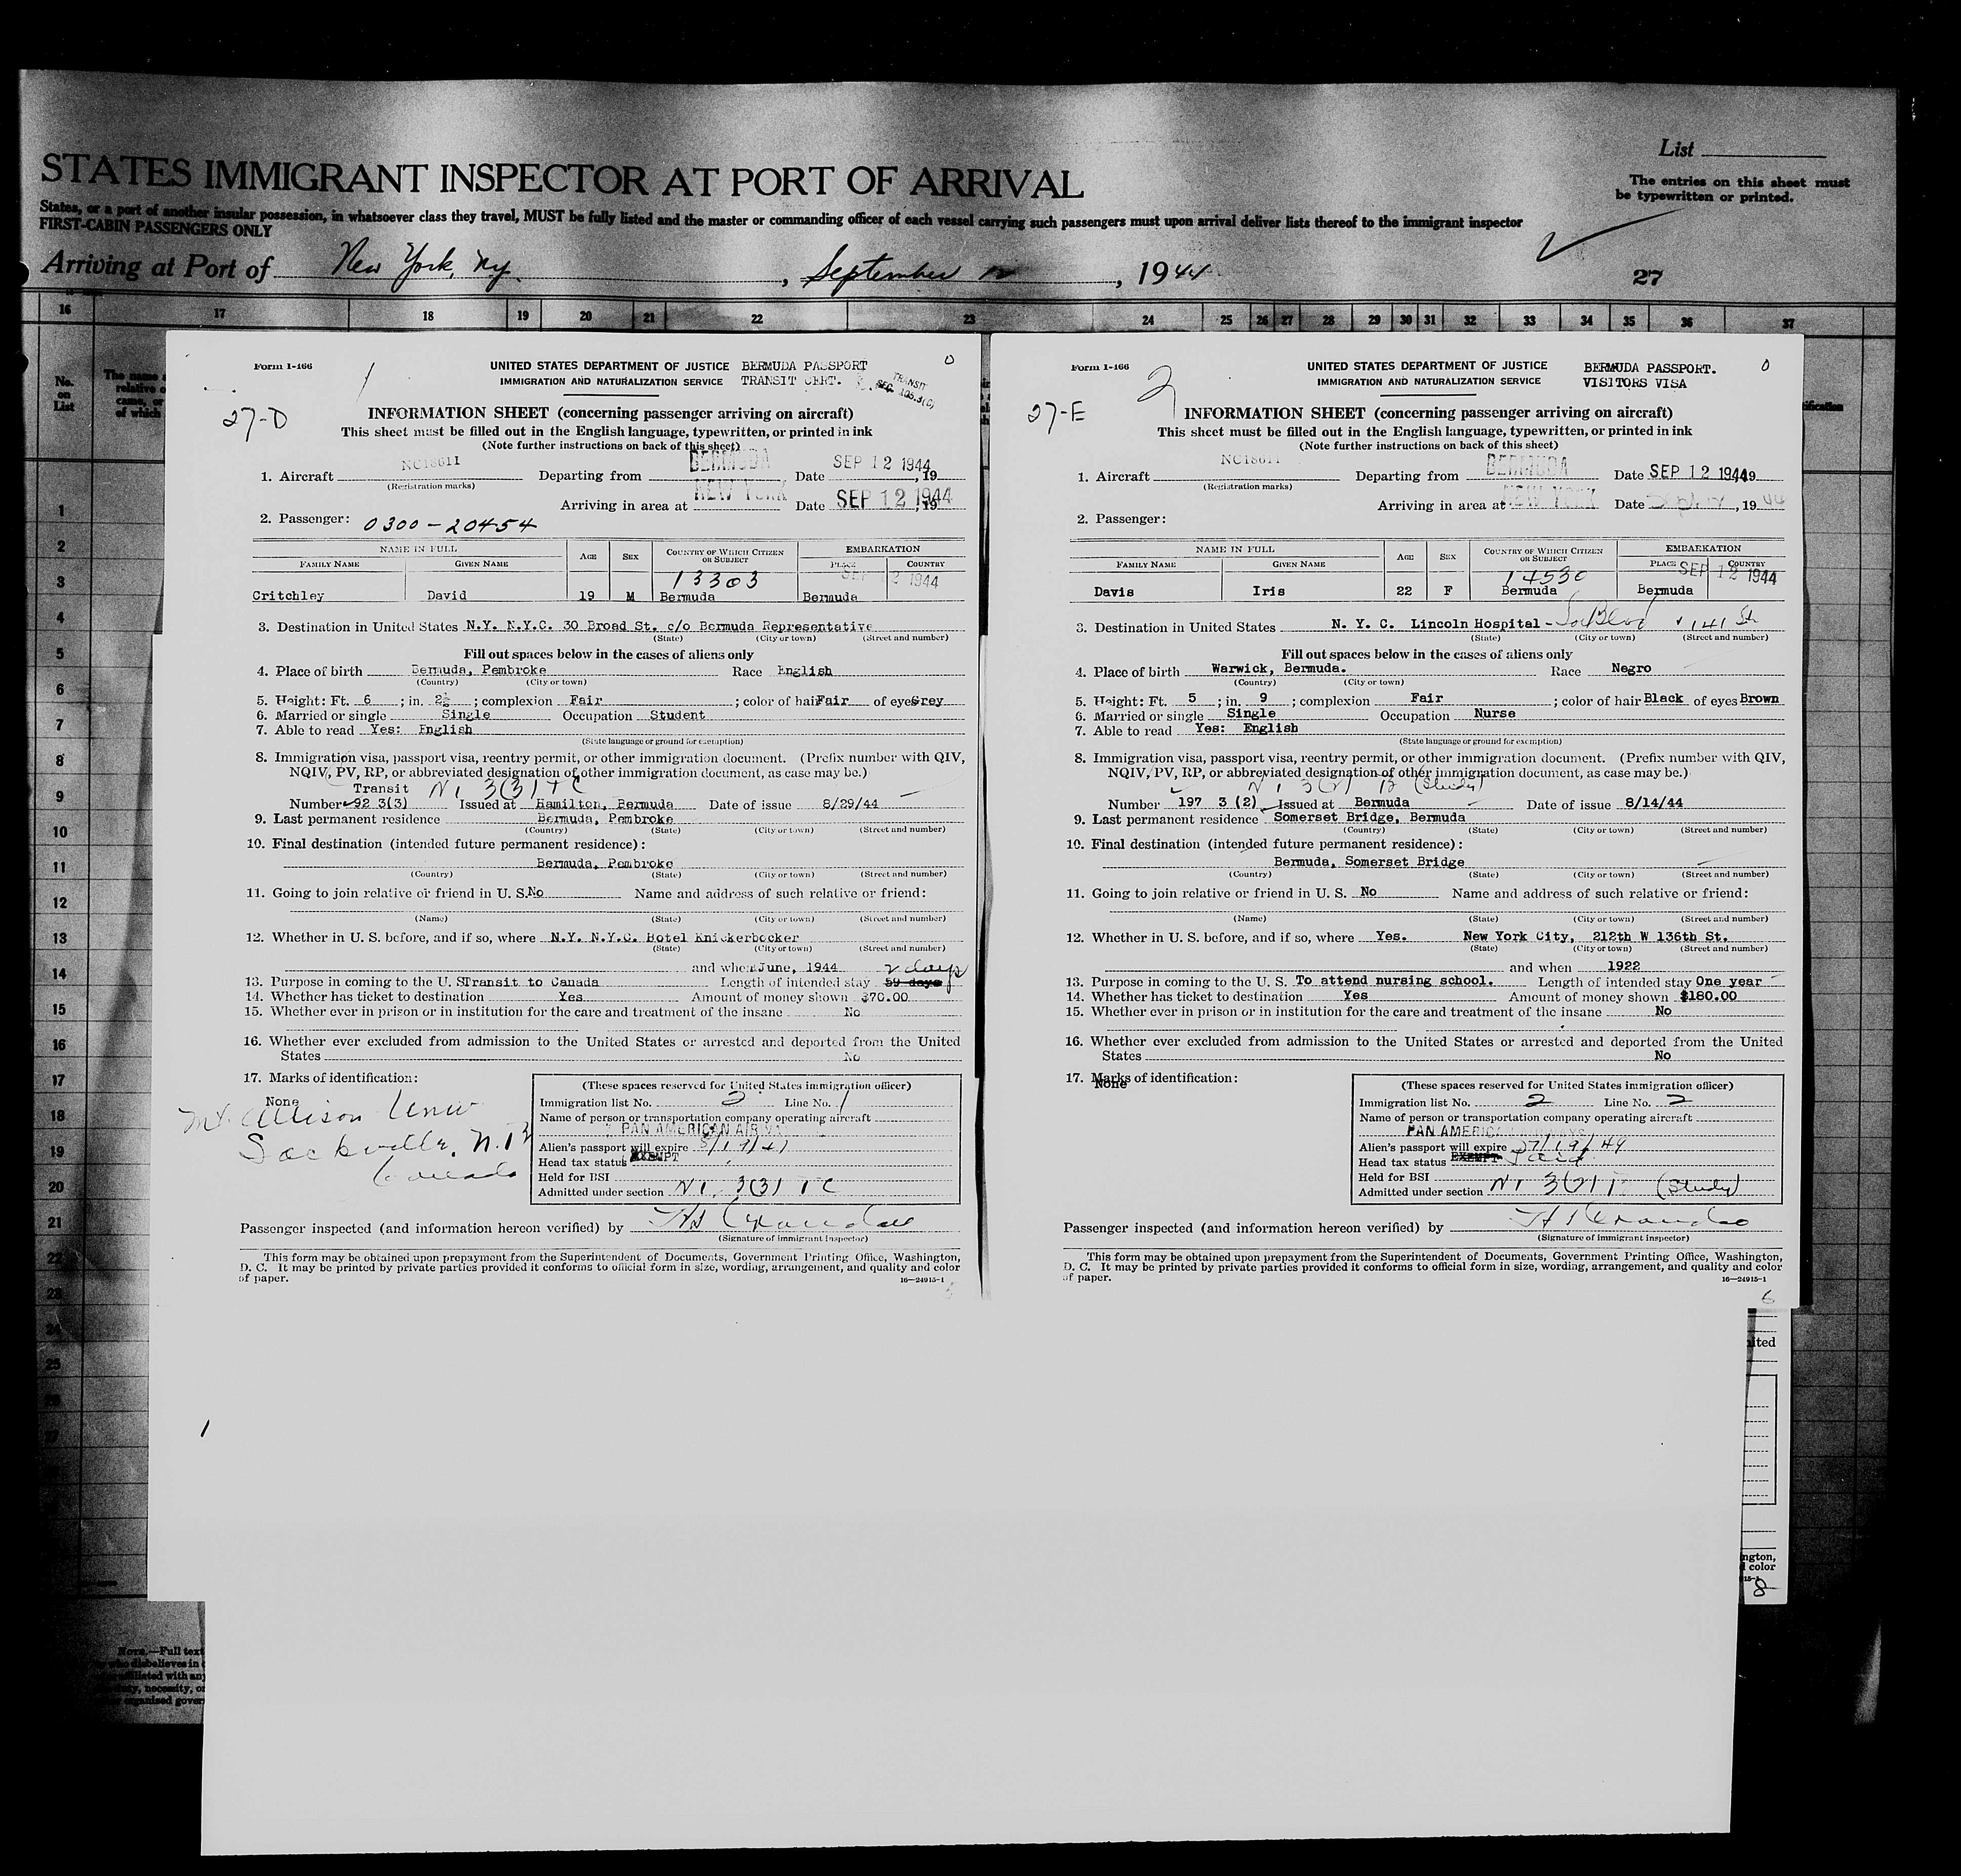 STATES IMMIGRANT INSPECTOR AT PORT OF ARRIVAL
List
The entries on this sheet must
be typewritten or printed.
States, or a port of another insular possession, in whatsoever class they travel, MUST be fully listed and the master or commanding officer of each vessel carrying such passengers must upon arrival deliver lists thereof to the immigrant inspector
FIRST-CABIN PASSENGERS ONLY
Arriving at Port of New York, Ny. , September 12 , 1944
27
16 17 18 19 20 21 22 23 24 25 26 27 28 29 30 31 32 33 34 35 36 37
No.
on
List
1
2
3
4
5
6
7
8
9
10
11
12
13
14
15
16
17
18
19
20
21
22
23
24
25
Form I-466
1
UNITED STATES DEPARTMENT OF JUSTICE
IMMIGRATION AND NATURALIZATION SERVICE
BERMUDA PASSPORT
TRANSIT CERT.
TRANSIT
SEC. 105.3(C)
0
27-D
INFORMATION SHEET (concerning passenger arriving on aircraft)
This sheet must be filled out in the English language, typewritten, or printed in ink
(Note further instructions on back of this sheet)
1. Aircraft NC18611 Departing from BERMUDA Date SEP 12 1944, 19
(Registration marks)
Arriving in area at NEW YORK Date SEP 12 1944, 19
2. Passenger: 0300-20454
NAME IN FULL AGE SEX COUNTRY OF WHICH CITIZEN OR SUBJECT EMBARKATION
FAMILY NAME GIVEN NAME PLACE COUNTRY
13303 SEP 12 1944
Critchley David 19 M Bermuda Bermuda
3. Destination in United States N.Y. N.Y.C. 30 Broad St. c/o Bermuda Representative
(State) (City or town) (Street and number)
Fill out spaces below in the cases of aliens only
4. Place of birth Bermuda, Pembroke Race English
(Country) (City or town)
5. Height: Ft. 6 ; in. 2½ ; complexion Fair ; color of hair Fair of eyes Grey
6. Married or single Single Occupation Student
7. Able to read Yes: English
(State language or ground for exemption)
8. Immigration visa, passport visa, reentry permit, or other immigration document. (Prefix number with QIV,
NQIV, PV, RP, or abbreviated designation of other immigration document, as case may be.)
Transit NI 3(3) TC
Number 92 3(3) Issued at Hamilton, Bermuda Date of issue 8/29/44
9. Last permanent residence Bermuda, Pembroke
(Country) (State) (City or town) (Street and number)
10. Final destination (intended future permanent residence):
Bermuda, Pembroke
(Country) (State) (City or town) (Street and number)
11. Going to join relative or friend in U. S. No Name and address of such relative or friend:
(Name) (State) (City or town) (Street and number)
12. Whether in U. S. before, and if so, where N.Y. N.Y.C. Hotel Knickerbocker
(State) (City or town) (Street and number)
and when June, 1944 2 days
13. Purpose in coming to the U. S. Transit to Canada Length of intended stay 59 days
14. Whether has ticket to destination Yes Amount of money shown $70.00
15. Whether ever in prison or in institution for the care and treatment of the insane No
16. Whether ever excluded from admission to the United States or arrested and deported from the United
States No
17. Marks of identification:
None
Mt. Allison Univ
Sackville, N.B
Canada
(These spaces reserved for United States immigration officer)
Immigration list No. 2 Line No. 1
Name of person or transportation company operating aircraft
PAN AMERICAN AIRWAYS
Alien's passport will expire
Head tax status EXEMPT
Held for BSI
Admitted under section NI 3(3) TC
Passenger inspected (and information hereon verified) by
(Signature of immigrant inspector)
This form may be obtained upon prepayment from the Superintendent of Documents, Government Printing Office, Washington,
D. C. It may be printed by private parties provided it conforms to official form in size, wording, arrangement, and quality and color
of paper.
16—24915-1
Form I-466
2
UNITED STATES DEPARTMENT OF JUSTICE
IMMIGRATION AND NATURALIZATION SERVICE
BERMUDA PASSPORT.
VISITORS VISA
0
27-E
INFORMATION SHEET (concerning passenger arriving on aircraft)
This sheet must be filled out in the English language, typewritten, or printed in ink
(Note further instructions on back of this sheet)
1. Aircraft NC18611 Departing from BERMUDA Date SEP 12 1944 19
(Registration marks)
Arriving in area at NEW YORK Date Sept. 12, 1944
2. Passenger:
NAME IN FULL AGE SEX COUNTRY OF WHICH CITIZEN OR SUBJECT EMBARKATION
FAMILY NAME GIVEN NAME PLACE COUNTRY
14530 SEP 12 1944
Davis Iris 22 F Bermuda Bermuda
3. Destination in United States N. Y. C. Lincoln Hospital - So Blvd & 141 St
(State) (City or town) (Street and number)
Fill out spaces below in the cases of aliens only
4. Place of birth Warwick, Bermuda. Race Negro
(Country) (City or town)
5. Height: Ft. 5 ; in. 9 ; complexion Fair ; color of hair Black of eyes Brown
6. Married or single Single Occupation Nurse
7. Able to read Yes: English
(State language or ground for exemption)
8. Immigration visa, passport visa, reentry permit, or other immigration document. (Prefix number with QIV,
NQIV, PV, RP, or abbreviated designation of other immigration document, as case may be.)
NI 3(2) (Study)
Number 197 3 (2) Issued at Bermuda Date of issue 8/14/44
9. Last permanent residence Somerset Bridge, Bermuda
(Country) (State) (City or town) (Street and number)
10. Final destination (intended future permanent residence):
Bermuda, Somerset Bridge
(Country) (State) (City or town) (Street and number)
11. Going to join relative or friend in U. S. No Name and address of such relative or friend:
(Name) (State) (City or town) (Street and number)
12. Whether in U. S. before, and if so, where Yes. New York City, 212th W 136th St.
(State) (City or town) (Street and number)
and when 1922
13. Purpose in coming to the U. S. To attend nursing school. Length of intended stay One year
14. Whether has ticket to destination Yes Amount of money shown $180.00
15. Whether ever in prison or in institution for the care and treatment of the insane No
16. Whether ever excluded from admission to the United States or arrested and deported from the United
States No
17. Marks of identification:
None
(These spaces reserved for United States immigration officer)
Immigration list No. 2 Line No. 2
Name of person or transportation company operating aircraft
PAN AMERICAN AIRWAYS
Alien's passport will expire 7/19/49
Head tax status EXEMPT Paid
Held for BSI
Admitted under section NI 3(2) (Study)
Passenger inspected (and information hereon verified) by
(Signature of immigrant inspector)
This form may be obtained upon prepayment from the Superintendent of Documents, Government Printing Office, Washington,
D. C. It may be printed by private parties provided it conforms to official form in size, wording, arrangement, and quality and color
of paper.
16—24915-1
6
8